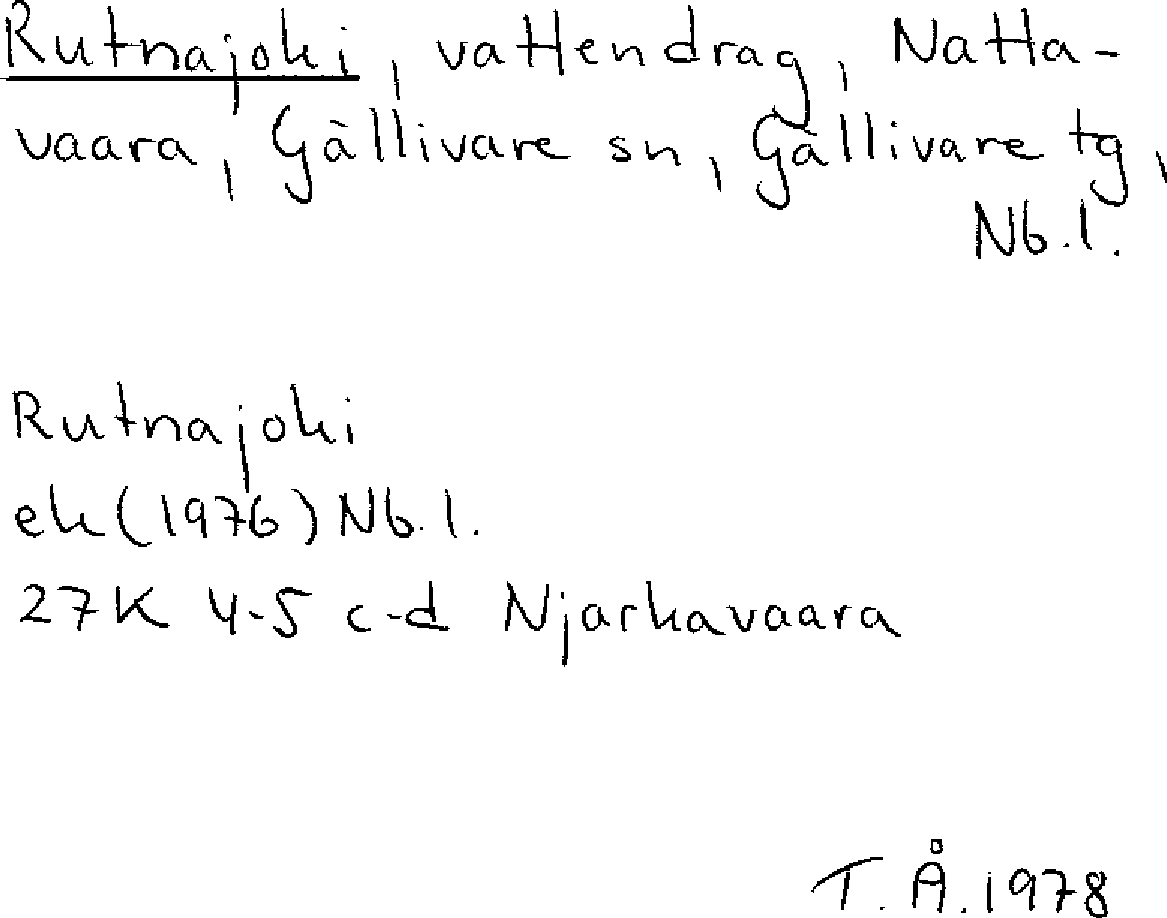 Rutnajoki, vattendrag, Natta-
vaara, Gällivare sn, Gällivare tg,
Nb.l.
Rutnajoki
ek (1976) Nb.l.
27K 4-5 c-d Njarkavaara
T.Å.1978